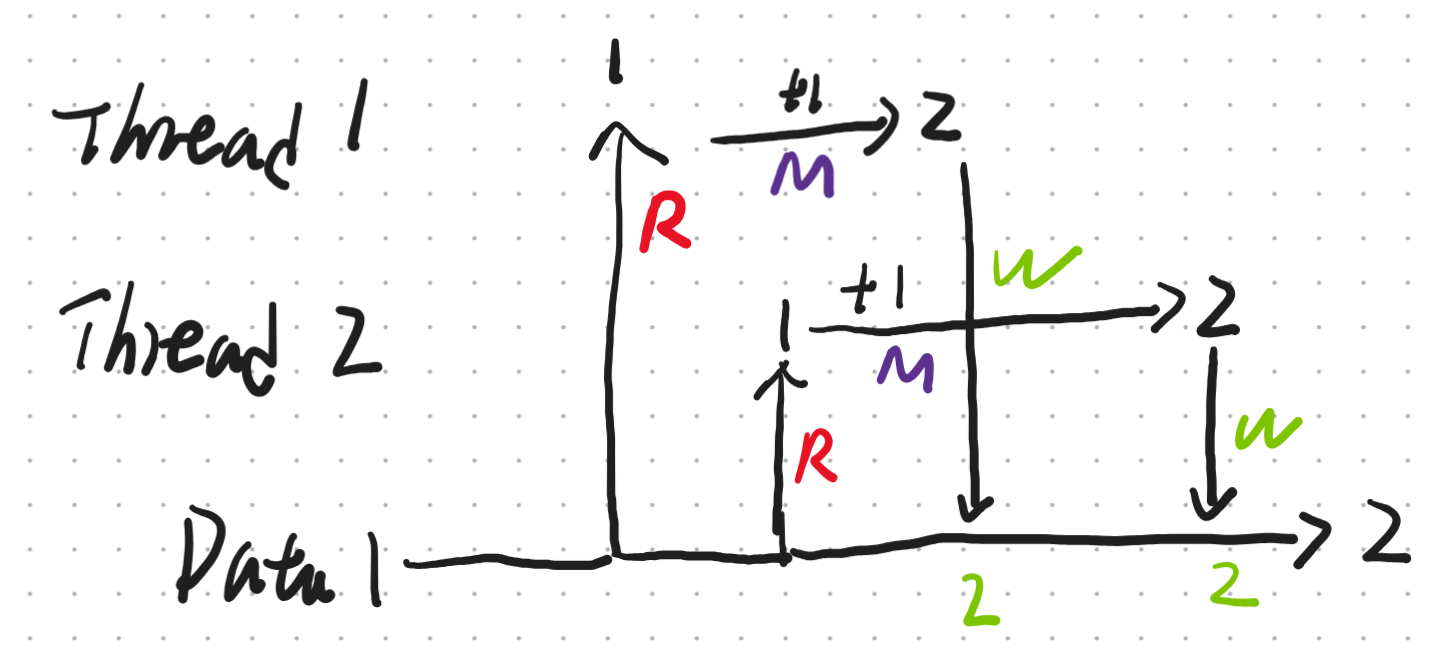 1
Thread 1 +1 2
M
R
W
Thread 2 1 +1 2
M
R W
Data 1 2
2 2